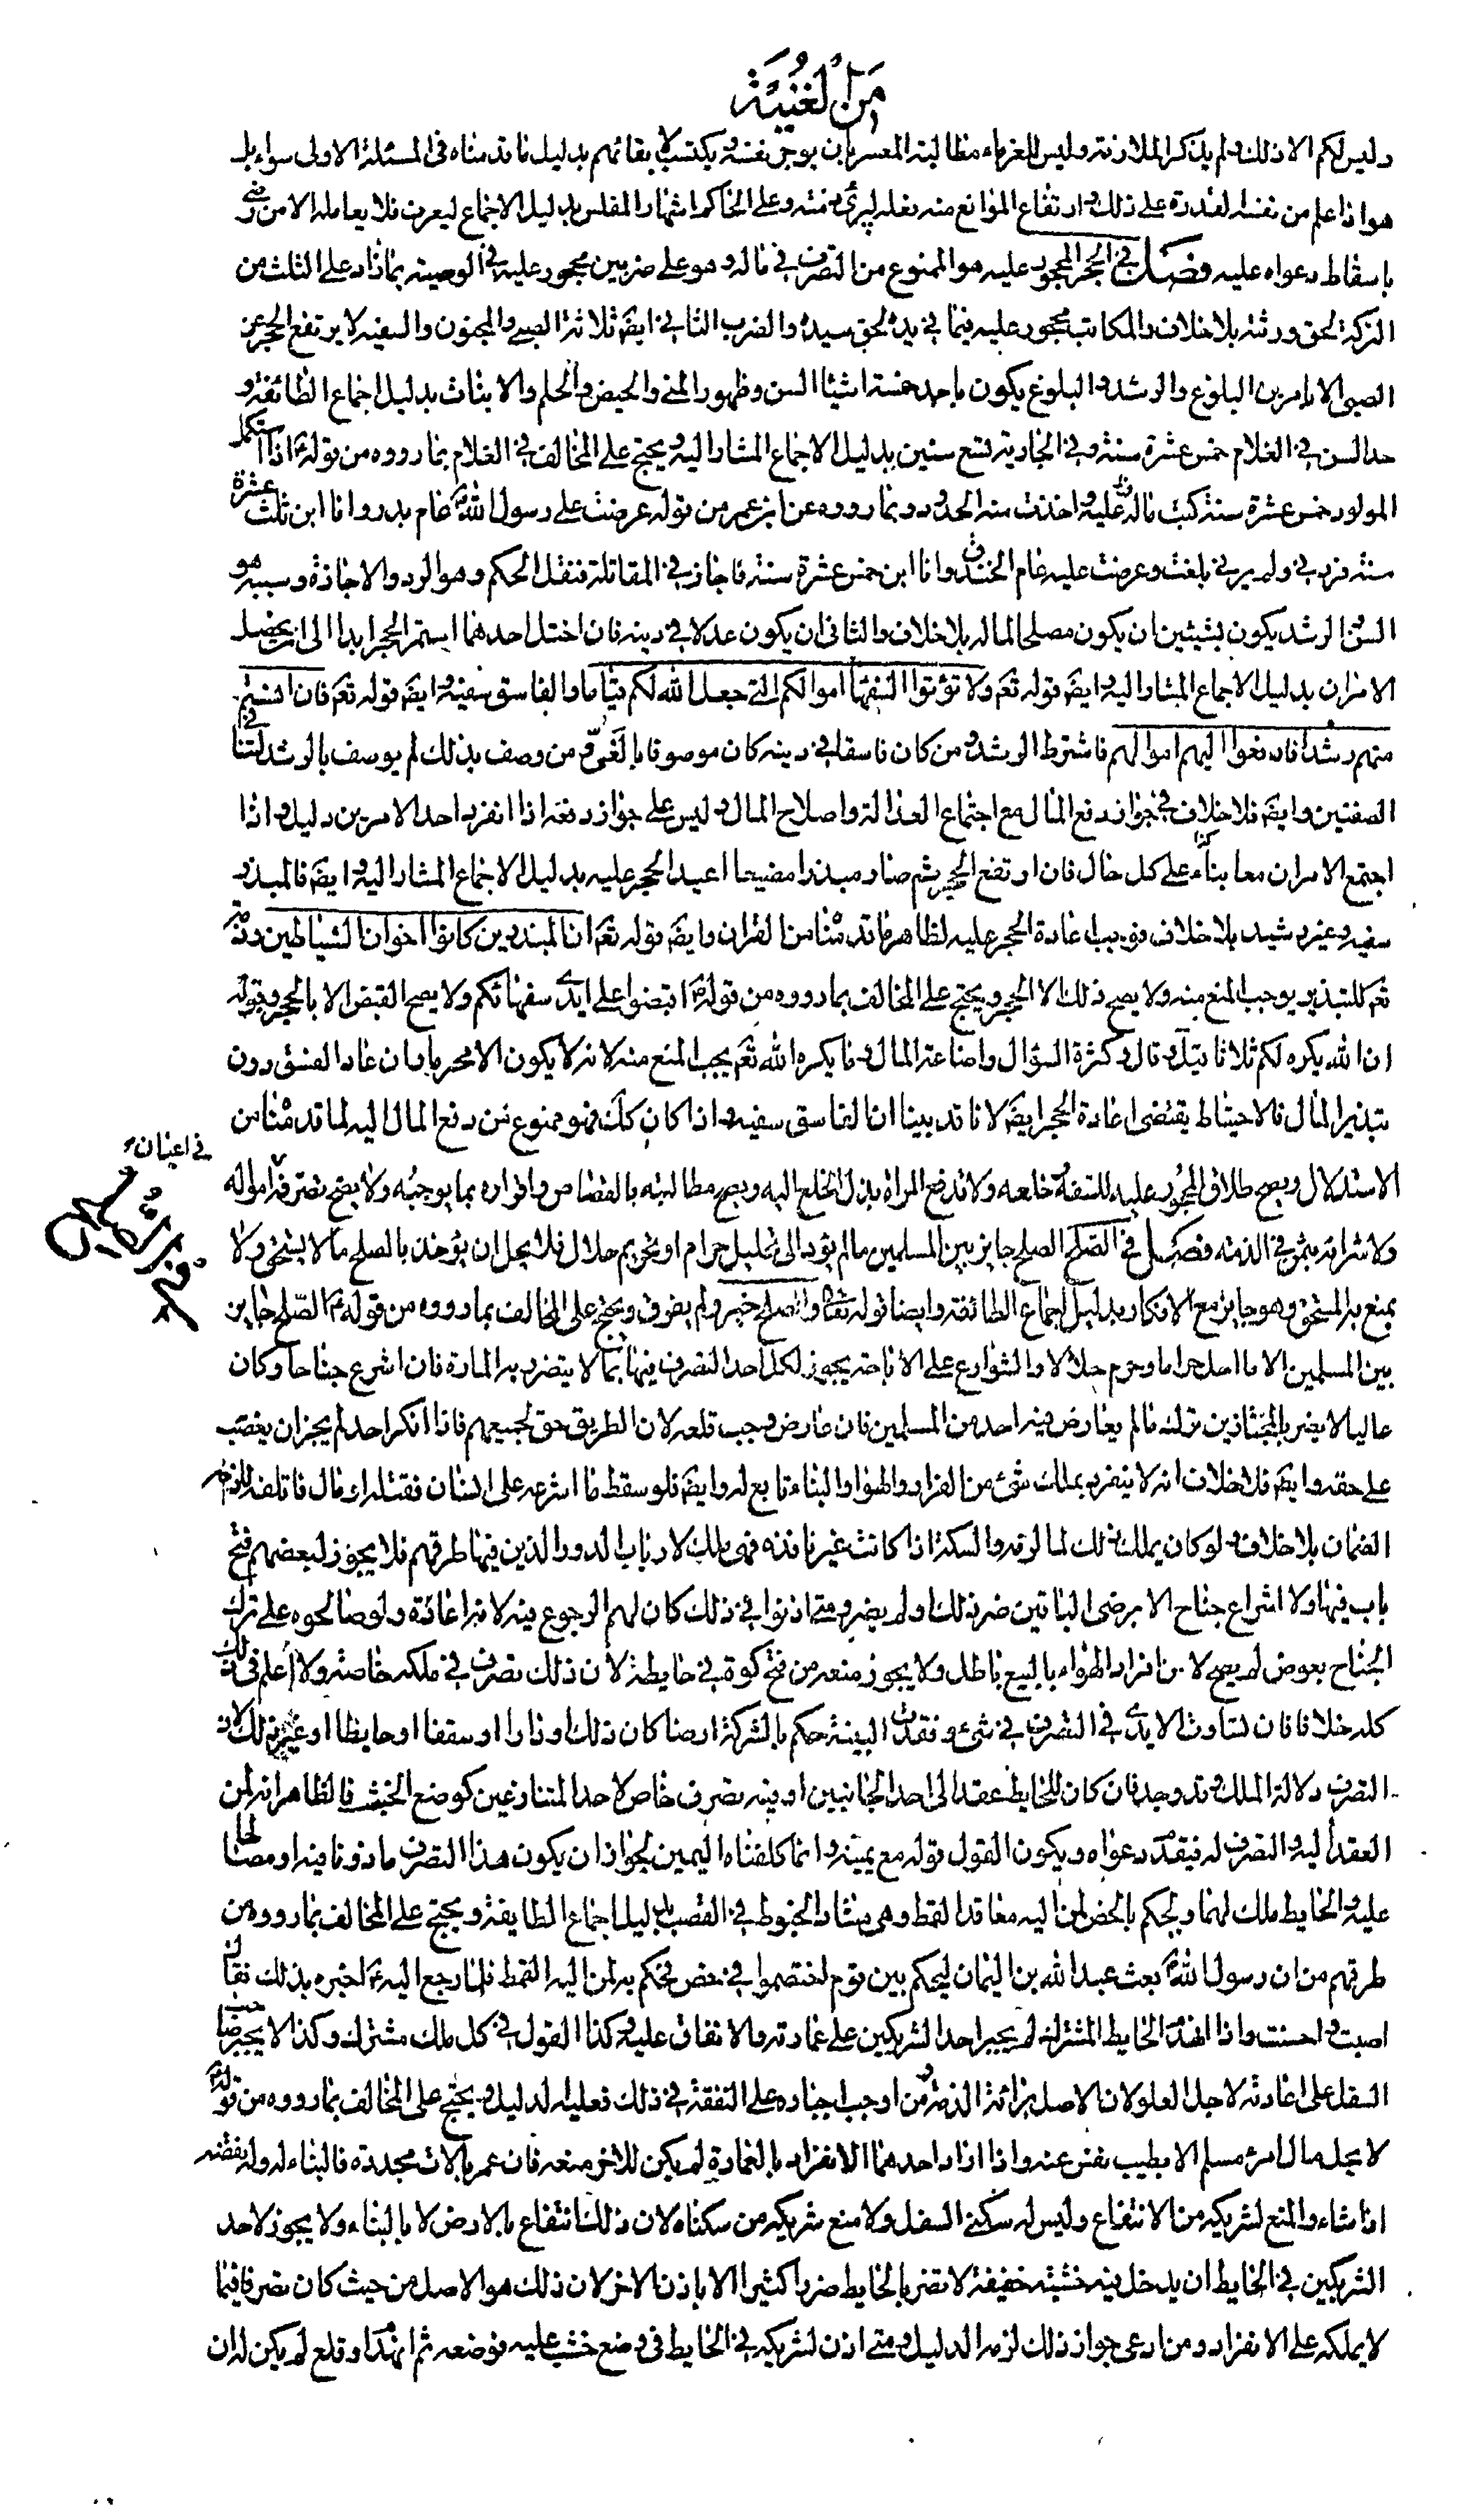 من الغنية
وليس لكم الا ذلك ولم يذكر الملازمة وليس للغرماء مطالبة المعسر بان يوجر نفسه ويكتسب لايفائهم بدليل ما قدمناه في المسئلة الاولى سواء بل
هو اذا علم من نفسه القدرة على ذلك وارتفاع الموانع منه فعله ليبرئ ذمته وعلى الحاكم اشهار المفلس بدليل الاجماع ليعرف فلا يعامله الا من رضى
باسقاط دعواه عليه فصل في الحجر المحجور عليه هو الممنوع من التصرف في ماله وهو على ضربين محجور عليه في الوصية بما زاد على الثلث من
التركة لحق ورثته بلا خلاف والمكاتب محجور عليه فيما في يده لحق سيده والضرب الثاني ايضَ ثلاثة الصبي والمجنون والسفيه لا يرتفع الحجر عن
الصبى الا بامرين البلوغ والرشد والبلوغ يكون باحد خمسة اشياء السن وظهور المني والحيض والحلم والانبات بدليل اجماع الطائفة و
حد السن في الغلام خمس عشرة سنة وفي الجارية تسع سنين بدليل الاجماع المشار اليه ويحتج على المخالف في الغلام بما رووه من قوله ع اذا استكمل
المولود خمس عشرة سنة كتب ماله وعليه واخذت منه الحدود وبما رووه عن ابن عمر من قوله عرضت على رسول الله ص عام بدر وانا ابن ثلث عشرة
سنة فردني ولم يرني بلغت وعرضت عليه عام الخندق وانا ابن خمس عشرة سنة فاجازني في المقاتلة فنقل الحكم وهو الرد والاجازة وسببه هو
السن والرشد يكون بشيئين ان يكون مصلحا لماله بلا خلاف والثانى ان يكون عدلا في دينه فان اختل احدهما استمر الحجر ابدا الى ان يحصل
الامران بدليل الاجماع المشار اليه وايضَ قوله تعَ ولا تؤتوا السفهاء اموالكم التي جعل الله لكم قياما والفاسق سفيه وايضَ قوله تعَ فان انستم
منهم رشدا فادفعوا اليهم اموالهم فاشترط الرشد ومن كان فاسقا في دينه كان موصوفا بالغي ومن وصف بذلك لم يوصف بالرشد لتنافي
الصفتين وايضَ فلا خلاف في جواز دفع المال مع اجتماع العدالة واصلاح المال وليس على جواز دفعه اذا انفرد احد الامرين دليل واذا
اجتمع الامران معا بناء على كل حال فان ارتفع الحجر ثم صار مبذرا مضيعا اعيد الحجر عليه بدليل الاجماع المشار اليه وايضَ فالمبذر
سفيه وغير رشيد بلا خلاف فوجب اعادة الحجر عليه لظاهر ما قدمنا من القران وايضَ قوله تعَ ان المبذرين كانوا اخوان الشياطين وذمه
تعَ للتبذير يوجب المنع منه ولا يصح ذلك الا بالحجر ويحتج على المخالف بما رووه من قوله ع اقبضوا على ايدي سفهائكم ولا يصح القبض الا بالحجر وقوله
ان الله يكره لكم ثلاثا قيل وقال وكثرة السؤال واضاعة المال وما يكره الله تعَ يجب المنع منه لانه لا يكون الا محرما وان عاد الفسق دون
تبذير المال فالاحتياط يقتضى اعادة الحجر ايضَ لانا قد بينا ان الفاسق سفيه واذا كان كذلك فهو ممنوع من دفع المال اليه لما قدمنا من
الاستدلال ويصح طلاق المحجور عليه للسفه وخلعه ولا تدفع المراة بذل الخلع اليه ويصح مطالبته بالقصاص واقراره بما يوجبه ولا يصح تصرفه في اعيان امواله
ولا شرائه بثمن في الذمة فصل في الصلح الصلح جايز بين المسلمين ما لم يؤد الى تحليل حرام او تحريم حلال فلا يحل ان يؤخذ بالصلح ما لا يستحق ولا
يمنع به المستحق وهو جايز مع الانكار بدليل اجماع الطائفة وايضا قوله تعالى والصلح خير ولم يفرق ويحتج على المخالف بما رووه من قوله ع الصلح جايز
بين المسلمين الا ما احل حراما وحرم حلالا والشوارع على الاباحة يجوز لكل احد التصرف فيها بما لا يتضرر به المارة فان اشرع جناحا وكان
عاليا لا يضر بالمجتازين ترك ما لم يعارض فيه احد من المسلمين فان عارض وجب قلعه لان الطريق حق لجميعهم فاذا انكر احد لم يجز ان يغصب
على حقه وايضَ فلا خلاف انه لا ينفرد بملك شئ من القرار والهواء والبناء تابع له وايضَ فلو سقط ما اشرعه على انسان فقتله او مال فاتلفه للزمه
الضمان بلا خلاف ولو كان يملك ذلك لما لزمه والسكة اذا كانت غير نافذة فهي ملك لارباب الدور الذين فيها طرقهم فلا يجوز لبعضهم فتح
باب فيها ولا اشراع جناح الا برضى الباقين ضر ذلك او لم يضر ومتى اذنوا في ذلك كان لهم الرجوع فيه لانه اعادة ولو صالحوه على ترك
الجناح بعوض لم يصح لان افراد الهواء بالبيع باطل ولا يجوز منعه من فتح كوة في حايطه لان ذلك تصرف في ملكه خاصة ولا اعلم في ذلك
كله خلافا فان تساوت الايدي في التصرف في شئ وفقدت البينة حكم بالشركة ارضا كان ذلك او دارا او سقفا او حايطا او غير ذلك لان
التصرف دلالة الملك وقد وجد فان كان للحايط عقد الى احد الجانبين او فيه تصرف خاص لاحد المتنازعين كوضع الخشب فالظاهر انه لمن
العقد اليه والتصرف له فيقدم دعواه ويكون القول قوله مع يمينه وانما كلفناه اليمين لجواز ان يكون هذا التصرف ماذونا فيه او مصالحا
عليه والحايط ملك لهما ويحكم بالخص لمن اليه معاقد القمط وهي مشاد الخيوط في القصب بدليل اجماع الطايفة ويحتج على المخالف بما رووه من
طرقهم من ان رسول الله ص بعث عبد الله بن اليمان ليحكم بين قوم اختصموا في خص فحكم به لمن اليه القمط فلما رجع اليه ع اخبره بذلك فقال
اصبت واحسنت واذا انهدم الحايط المشترك لم يجبر احد الشريكين على عمارته والانفاق عليه وكذا القول في كل ملك مشترك وكذا لا يجبر صاحب
السفل على اعادته لاجل العلو لان الاصل براءة الذمة ومن اوجب اجباره على النفقة في ذلك فعليه الدليل ويحتج على المخالف بما رووه من قوله ع
لا يحل مال امرئ مسلم الا بطيب نفس عنه واذا اراد احدهما الانفراد بالعمارة لم يكن للاخر منعه فان عمر بالات مجددة فالبناء له وله نقضه
اذا شاء والمنع لشريكه من الانتفاع وليس له سكنى السفل ولا منع شريكه من سكناه لان ذلك انتفاع بالارض لا بالبناء ولا يجوز لاحد
الشريكين في الحايط ان يدخل فيه خشبة خفيفة لا تضر بالحايط ضررا كثيرا الا باذن الاخر لان ذلك هو الاصل من حيث كان تصرفا فيما
لا يملكه على الانفراد ومن ادعى جواز ذلك لزمه الدليل ومتى اذن لشريكه في الحايط في وضع خشب عليه فوضعه ثم انهدم او قلع لم يكن له ان